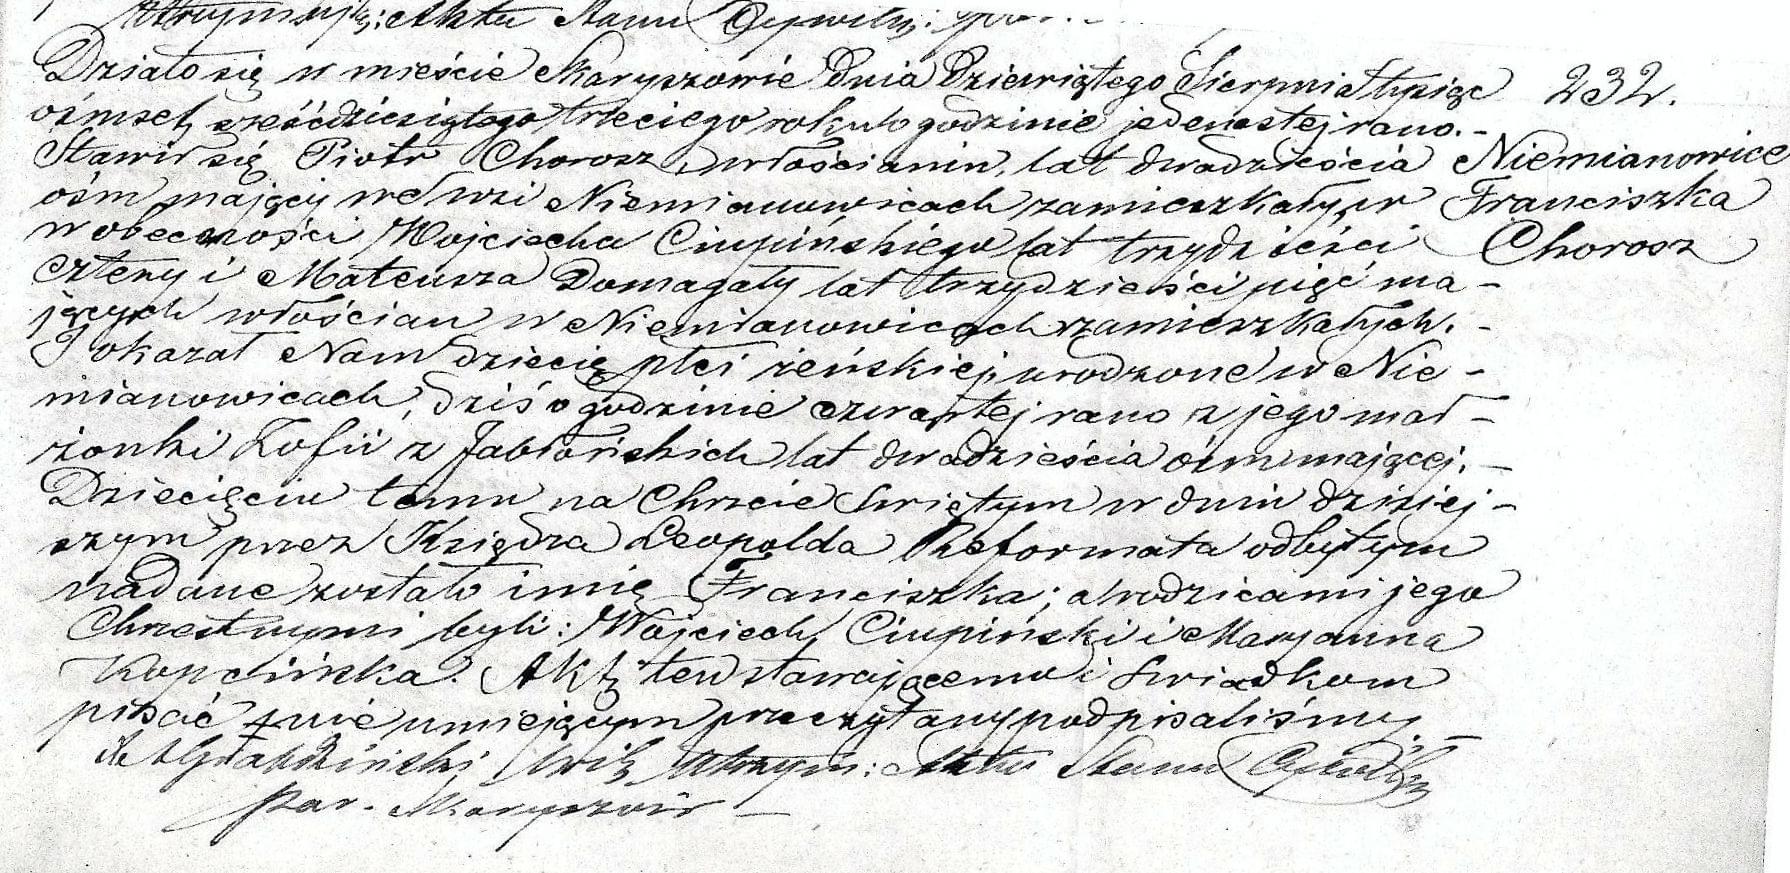 Utrzymujący: Akta Stanu Cywiln:
Działo się w mieście Skaryszowie Dnia Dziewiątego Sierpnia tysiąc
232.
ośmset sześćdziesiątego trzeciego roku o godzinie jedenastej rano.-
Stawił się Piotr Chorosz, włościanin, lat dwadzieścia
Niemianowice
ośm mający we wsi Niemianowicach zamieszkały, w
Franciszka
w obecności Wojciecha Ciupińskiego lat trzydzieści
Chorosz
cztery i Mateusza Domagały lat trzydzieści pięć ma-
jących włościan w Niemianowicach zamieszkałych.-
I okazał Nam dziecię płci żeńskiej, urodzone w Nie-
mianowicach, dziś o godzinie czwartej rano z jego mał-
żonki Zofii z Jabłońskich lat dwadzieścia ośm mającej.-
Dziecięciu temu na Chrzcie Swiętym w dniu dzisiej-
szym przez Księdza Leopolda Reformata odbytym
nadane zostało imię Franciszka; a rodzicami jego
Chrzestnymi byli: Wojciech Ciupiński i Maryanna
Kopcińska. Akt ten stawającemu i Swiadkom
pisać nie umiejącym przeczytany podpisaliśmy.-
Utrzym: Akta Stanu Cywiln
par. Skaryszow -